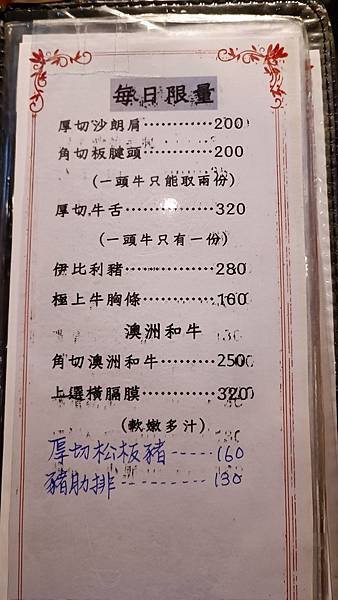 每日限量
厚切沙朗肩············200
角切板腱頭············200
(一頭牛只能取兩份)
厚切牛舌···············320
(一頭牛只有一份)
伊比利豬···············280
極上牛胸條············160
澳洲和牛
角切澳洲和牛·········250
上選橫膈膜············320
(軟嫩多汁)
厚切松板豬-----160
豬肋排---------130